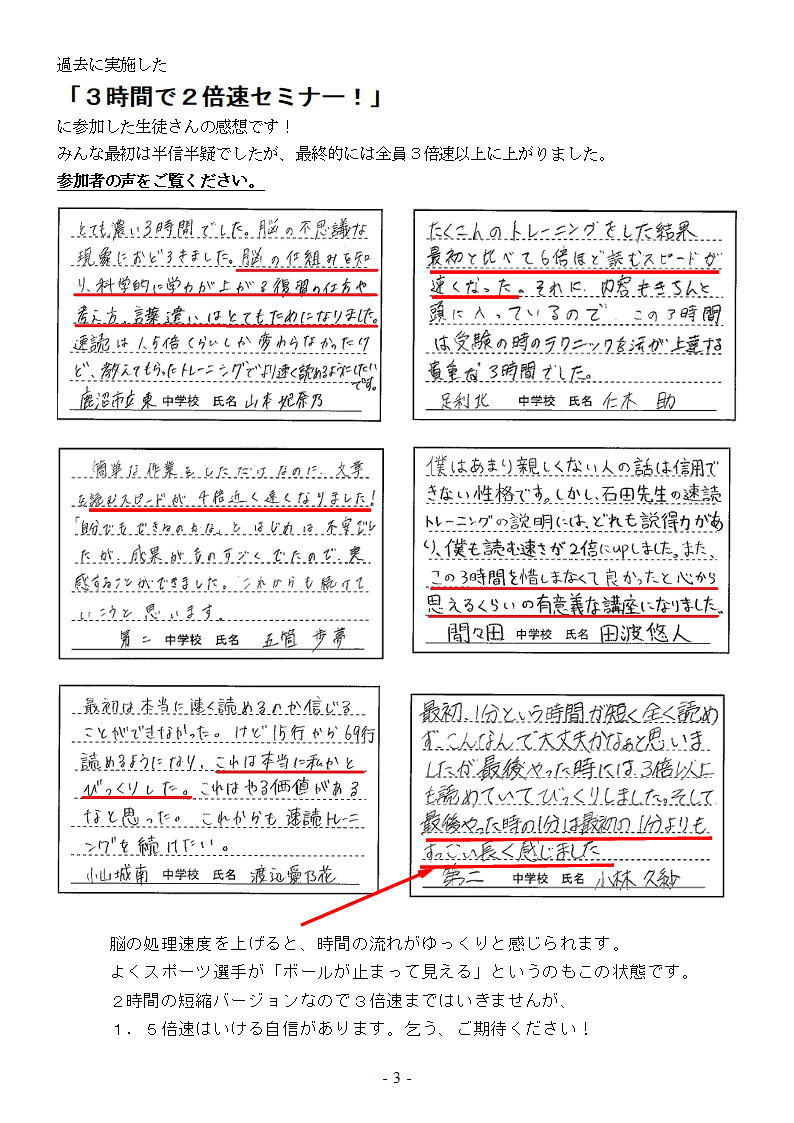 過去に実施した
「３時間で２倍速セミナー！」
に参加した生徒さんの感想です！
みんな最初は半信半疑でしたが、最終的には全員３倍速以上に上がりました。
参加者の声をご覧ください。
とても濃い3時間でした。脳の不思議な
現象におどろきました。脳の仕組みを知
り、科学的に学力が上がる復習の仕方や
考え方、言葉遣いはとてもためになりました。
速読は1.5倍くらいしか変わらなかったけ
ど、教えてもらったトレーニングでより速く読めるようになりたい
です。
鹿沼市立東 中学校 氏名 山本妃奈乃
たくさんのトレーニングをした結果
最初と比べて6倍ほど読むスピードが
速くなった。それに、内容もきちんと
頭に入っているので、この3時間
は受験の時のテクニックを活が上達する
貴重な3時間でした。
足利北 中学校 氏名 仁木 助
簡単な作業をしただけなのに、文章
を読むスピードが4倍近く速くなりました!
「自分でもできるのかな」とはじめは不安でし
たが、成果がものすごくでたので、実
感することができました。これからも続けて
いこうと思います。
第二 中学校 氏名 五箇 歩夢
僕はあまり親しくない人の話は信用で
きない性格です。しかし、石田先生の速読
トレーニングの説明には、どれも説得力があ
り、僕も読む速さが2倍にupしました。また、
この3時間を惜しまなくて良かったと心から
思えるくらいの有意義な講座になりました。
間々田 中学校 氏名 田波悠人
最初は本当に速く読めるのか信じる
ことができなかった。けど15行から69行
読めるようになり、これは本当に私かと
びっくりした。これはやる価値がある
なと思った。これからも速読トレーニ
ングを続けたい。
小山城南 中学校 氏名 渡辺愛乃花
最初、1分という時間が短く全く読め
ず、こんなんで大丈夫かなぁと思いま
したが最後やった時には、3倍以上
も読めていてびっくりしました。そして
最後やった時の1分は最初の1分よりも
すっごい長く感じました
第二 中学校 氏名 小林 久紗
脳の処理速度を上げると、時間の流れがゆっくりと感じられます。
よくスポーツ選手が「ボールが止まって見える」というのもこの状態です。
２時間の短縮バージョンなので３倍速まではいきませんが、
１．５倍速はいける自信があります。乞う、ご期待ください！
- 3 -